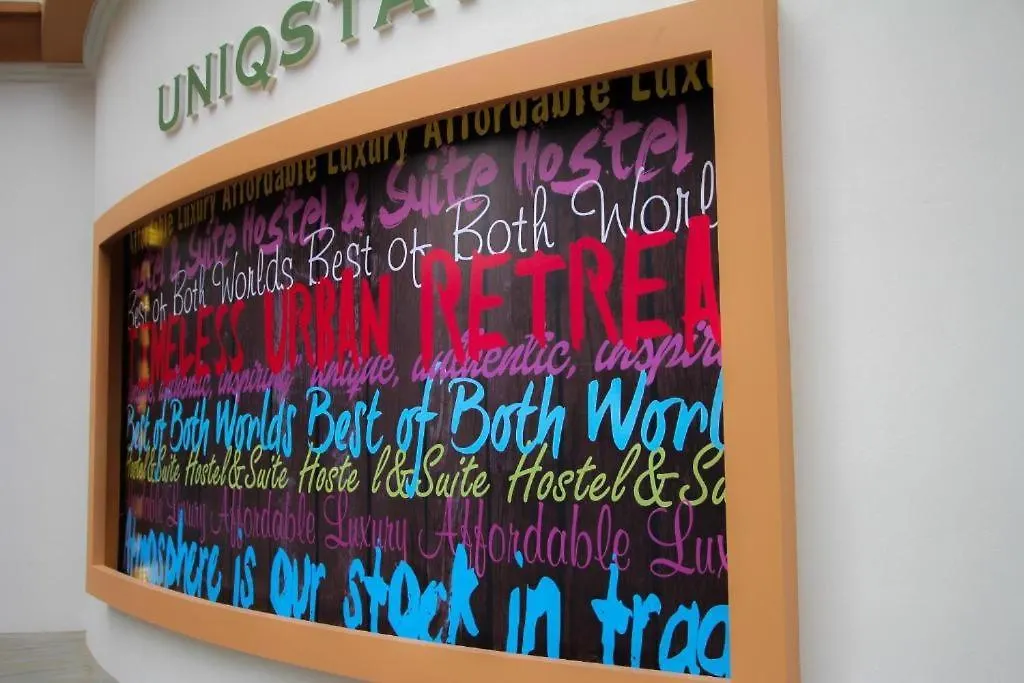 UNIQSTA
Affordable Luxury Affordable Luxury Affordable Luxu
& Suite Hostel & Suite Hostel
Best of Both Worlds Best of Both Worl
TIMELESS URBAN RETREA
authentic, inspiring" unique, authentic, inspiri
Best of Both Worlds Best of Both Worl
Hostel&Suite Hostel&Suite Hoste l&Suite Hostel&Su
Luxury Affordable Luxury Affordable Lux
Atmosphere is our stock in trad